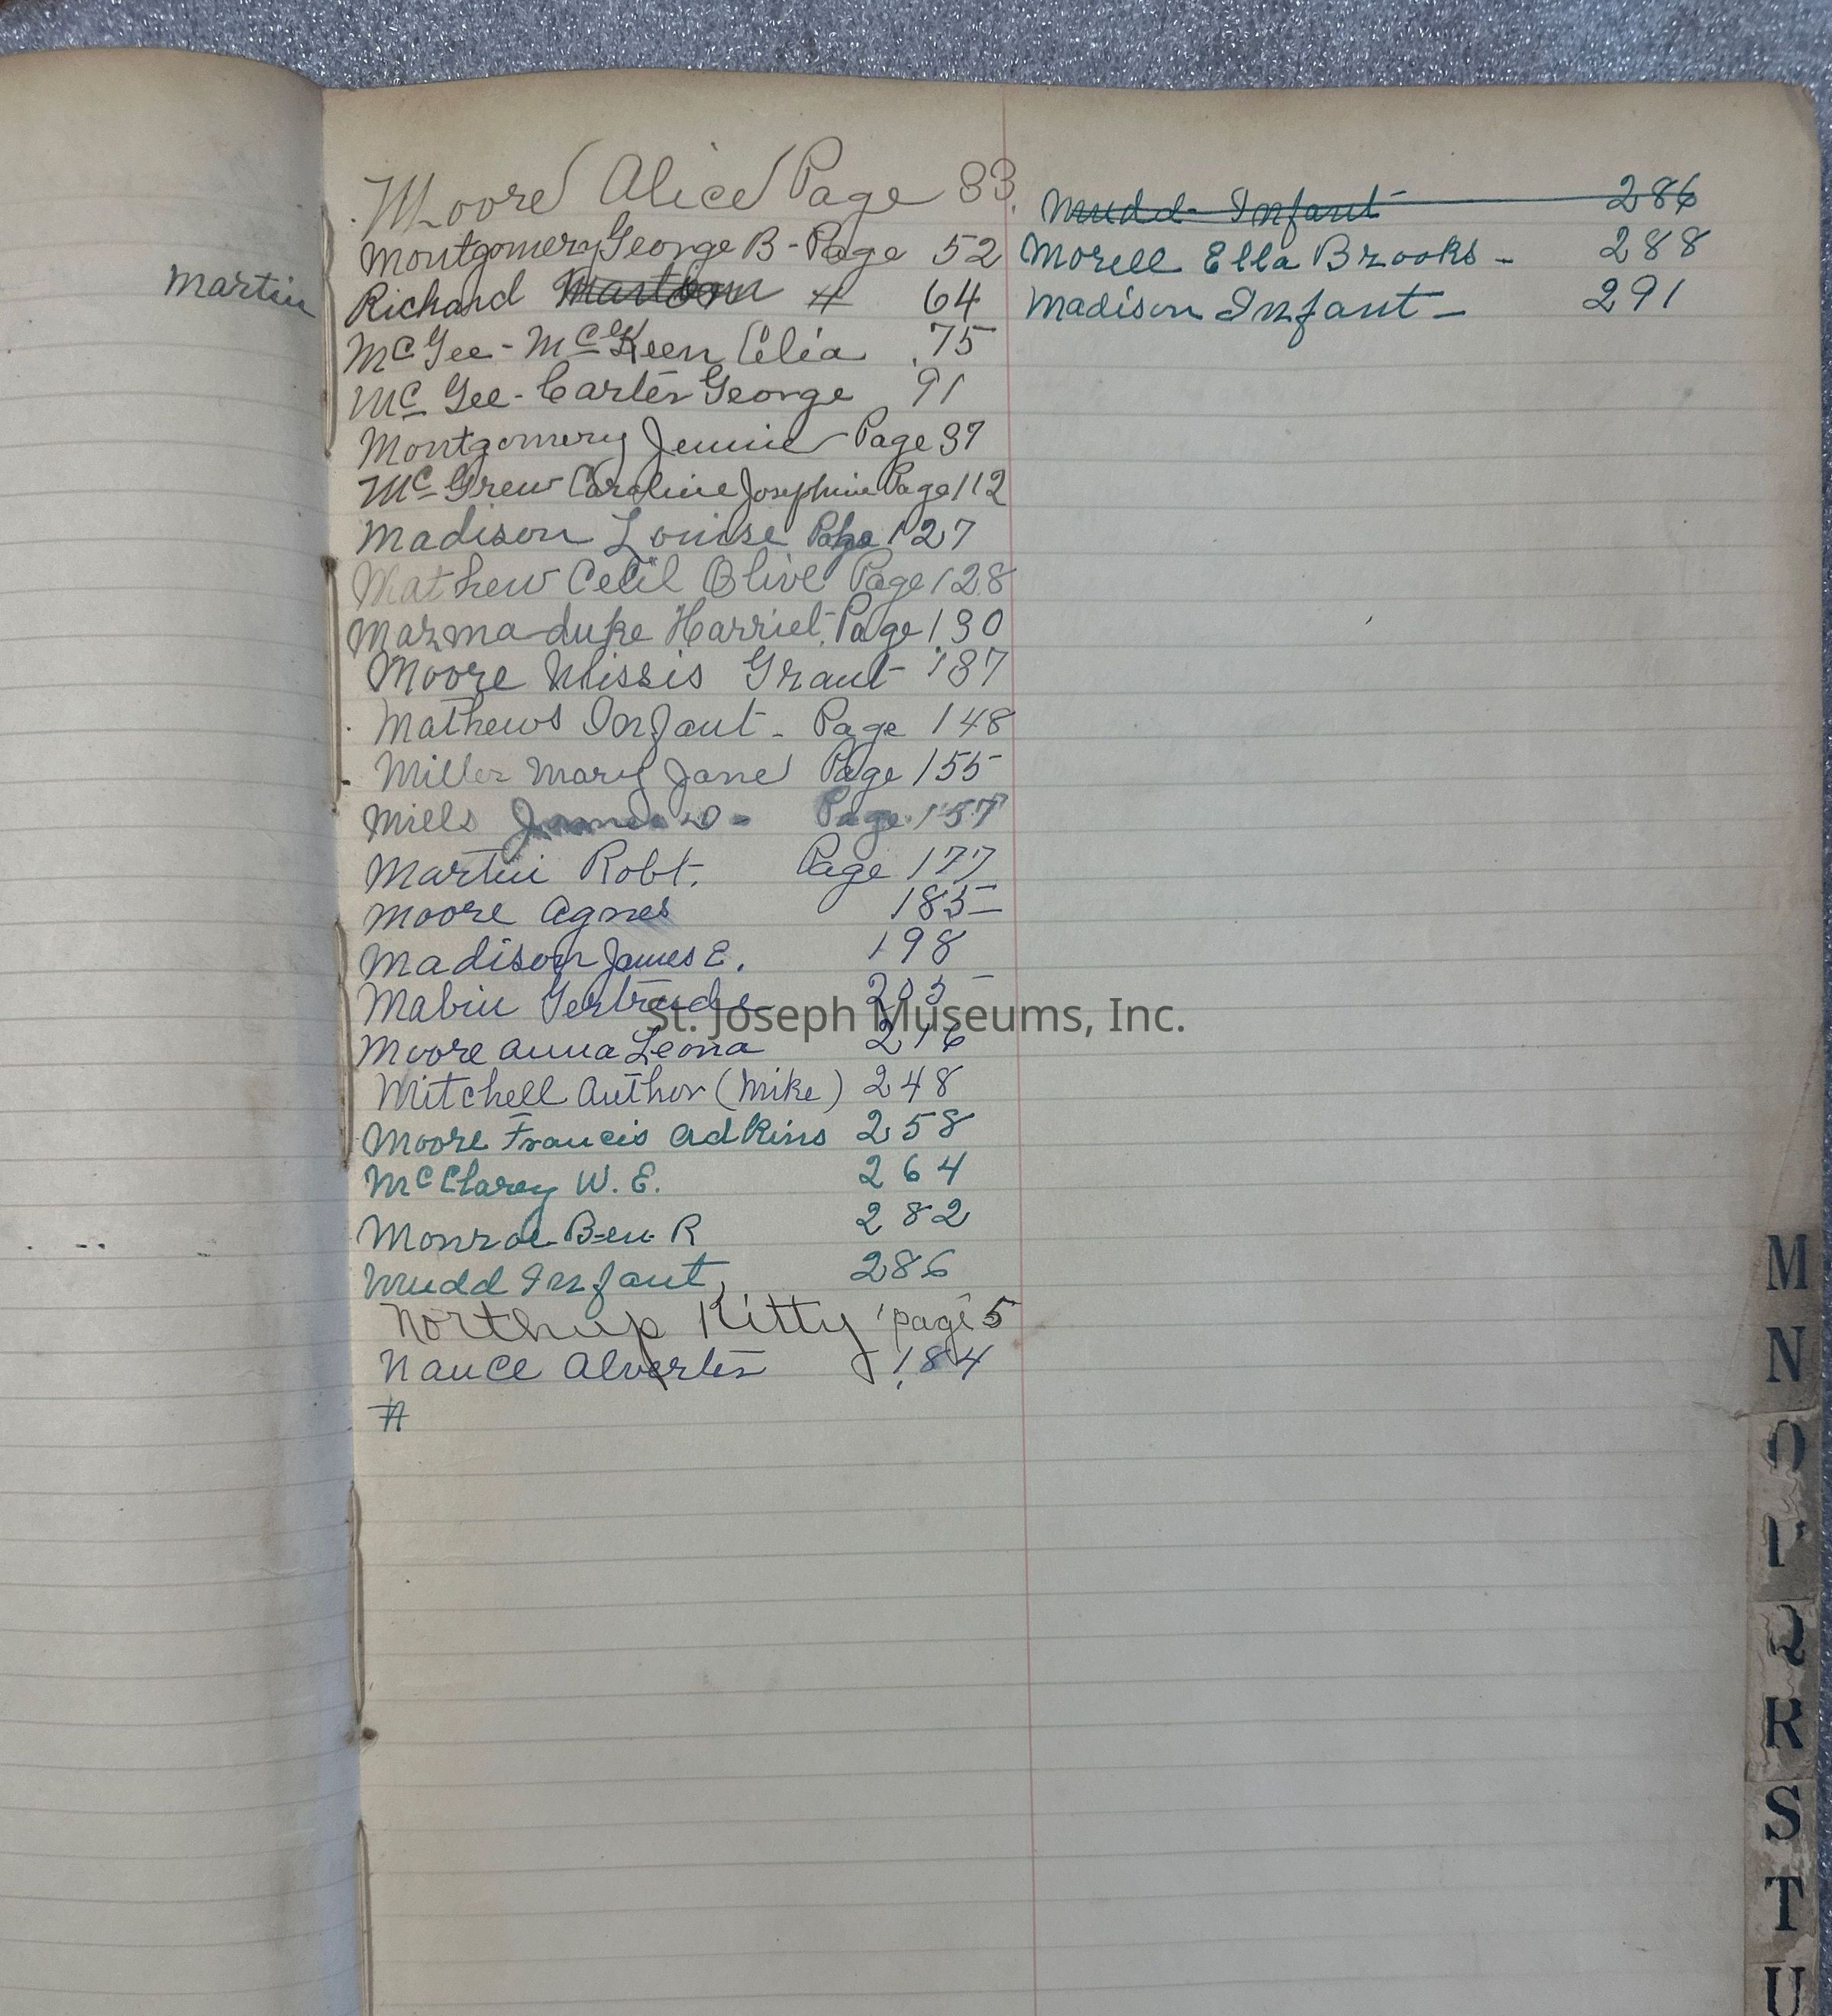 Moore Alice Page 33.
Montgomery George B - Page 52
Martin Richard 64
McGee - McKeen Celia 75
Mc Gee - Carter George 91
Montgomery Jennie Page 97
McGrew Caroline Josephine Page 112
Madison Louise Page 127
Mathew Cecil Olive Page 128
Marmaduke Harriet. Page 130
Moore Ulissis Grant 137
Mathews Infant - Page 148
Miller Mary Jane Page 155
Mills James D - Page 157
Martin Robt. Page 177
Moore Agnes 185
Madison James E. 198
Mabin Gertrude 205
Moore Anna Leona 216
Mitchell Author (Mike) 248
Moore Francis Adkins 258
McClarey W. E. 264
Monroe Ben R 282
Mudd Infant, 286
Northup Kitty page 5
Nance Alverter 184
Mudd Infant 286
Morell Ella Brooks - 288
Madison Infant - 291
St. Joseph Museums, Inc.
M
N
O
P
Q
R
S
T
U